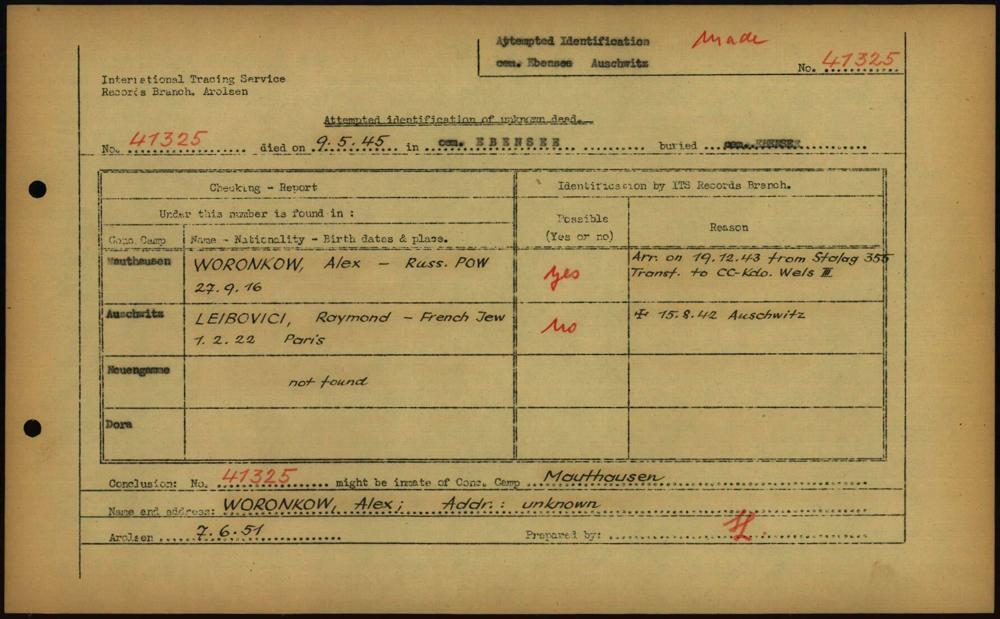 Attempted Identification Made
cem. Ebensee Auschwitz
No. 41325
International Tracing Service
Records Branch. Arolsen
Attempted identification of unknown dead.
No. 41325 died on 9.5.45 in cem. EBENSEE buried cem. EBENSEE
Checking - Report
Identification by ITS Records Branch.
Under this number is found in :
Possible
(Yes or no)
Reason
Conc. Camp Name - Nationality - Birth dates & place.
Mauthausen WORONKOW, Alex - Russ. POW
27.9.16
yes
Arr. on 19.12.43 from Stalag 355
Transf. to CC-Kdo. Wels III
Auschwitz LEIBOVICI, Raymond - French Jew
1.2.22 Paris
No
15.8.42 Auschwitz
Neuengamme
not found
Dora
Conclusion: No. 41325 might be inmate of Conc. Camp Mauthausen
Name and address: WORONKOW, Alex; Addr.: unknown
Arolsen 7.6.51 Prepared by: